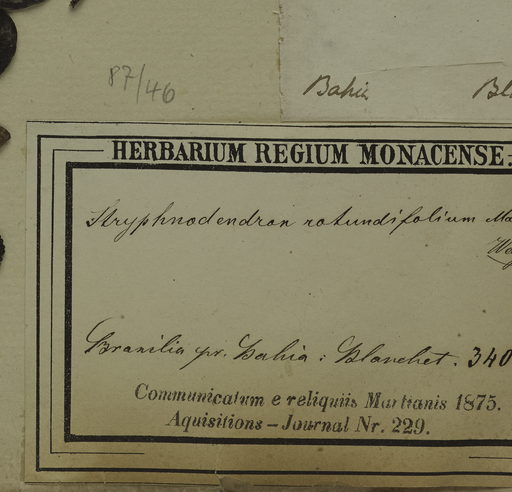 87/46
Bahia Bl
HERBARIUM REGIUM MONACENSE.
Stryphnodendron rotundifolium Ma
Brasilia pr. Bahia: Blanchet. 340
Communicatum e reliquiis Martianis 1875.
Aquisitions – Journal Nr. 229.